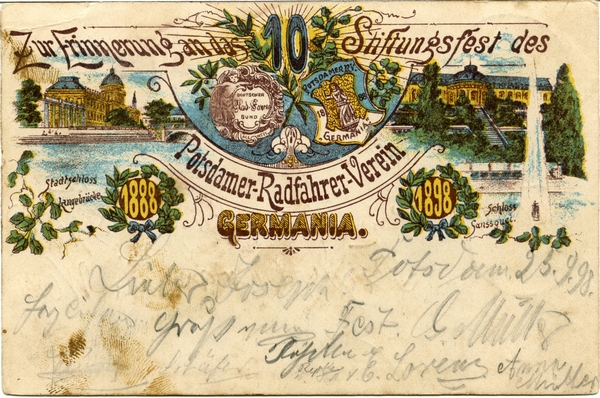 Zur Erinnerung an das 10 Stiftungsfest des
DEUTSCHER
BUND
POTSDAMER R.V.
GERMANIA
Potsdamer-Radfahrer-Verein
GERMANIA.
Stadtschloss
Langebrücke
1888
1898
Schloss
Sanssouci.
Lieber Joseph Potsdam 25.9.98.
Gruß vom Fest. Müller
E. Lorenz Anna
Müller